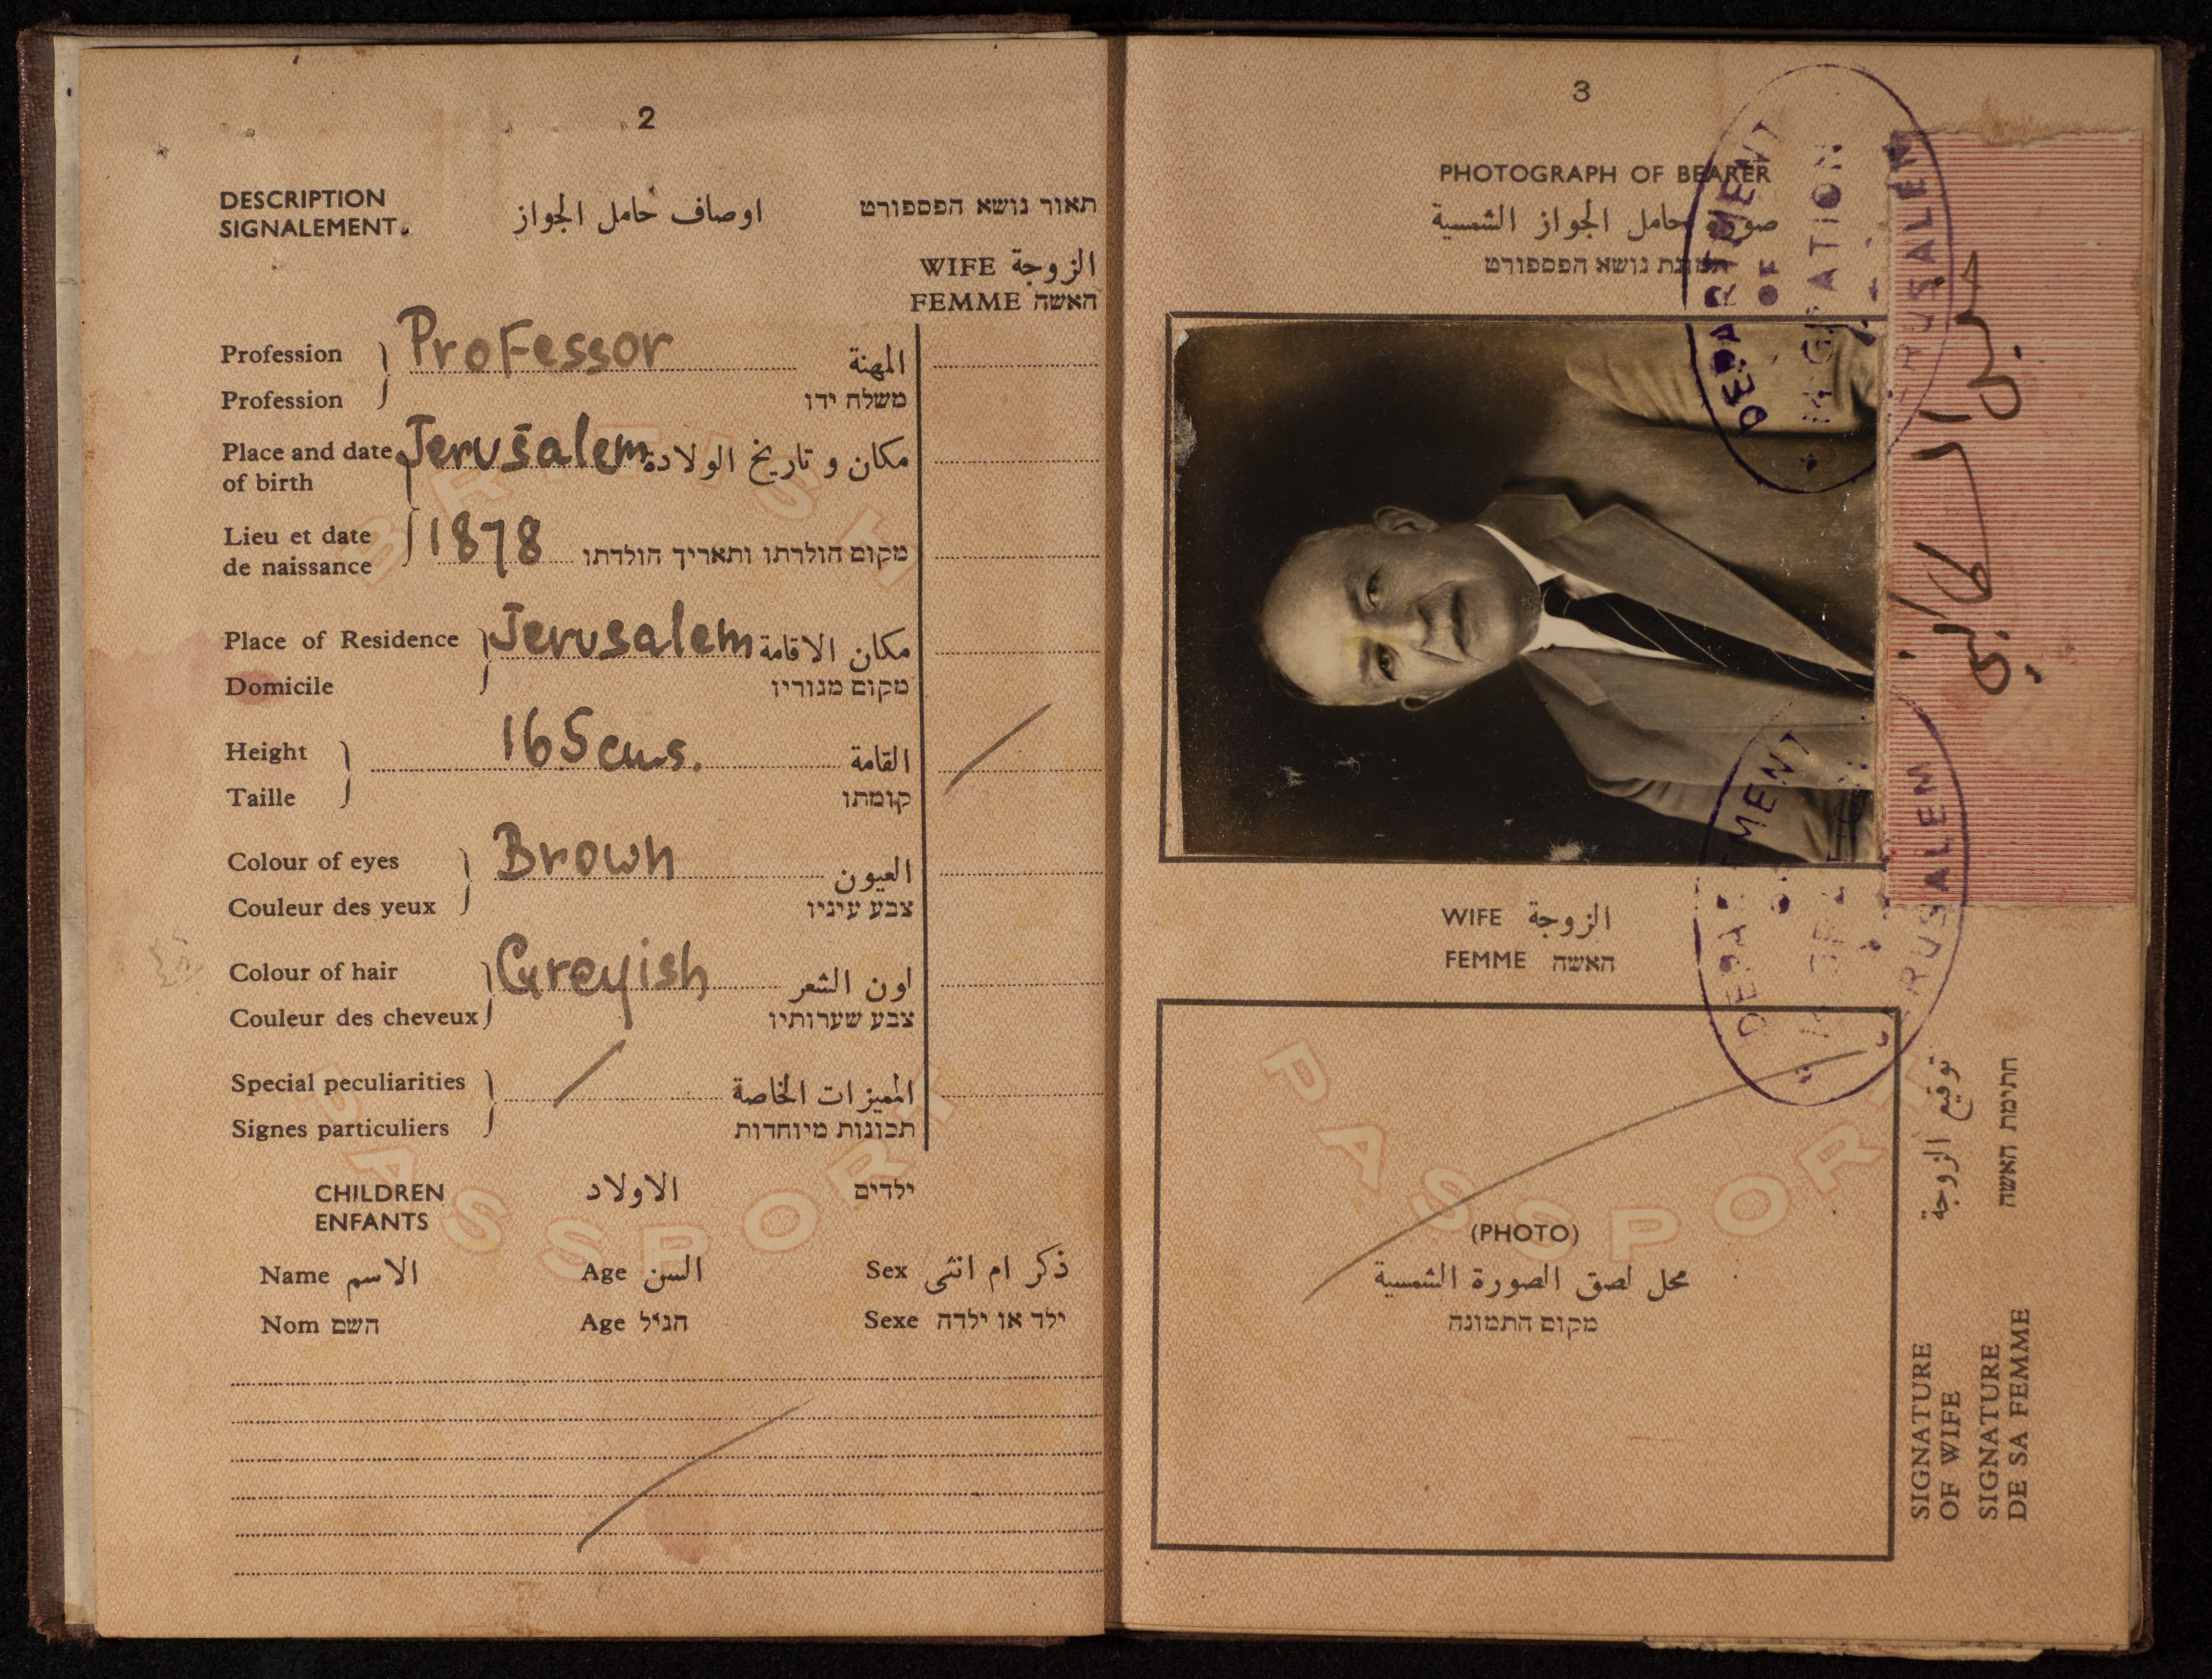 2
DESCRIPTION اوصاف حامل الجواز תאור נושא הפספורט
SIGNALEMENT.
WIFE الزوجة
FEMME האשה
Profession Professor المهنة
Profession משלח ידו
Place and date Jerusalem مكان و تاريخ الولادة
of birth
Lieu et date 1878 מקום הולדתו ותאריך הולדתו
de naissance
Place of Residence Jerusalem مكان الاقامة
Domicile מקום מגוריו
Height 165 cms. القامة
Taille קומתו
Colour of eyes Brown العيون
Couleur des yeux צבע עיניו
Colour of hair Greyish لون الشعر
Couleur des cheveux צבע שערותיו
Special peculiarities المميزات الخاصة
Signes particuliers תכונות מיוחדות
CHILDREN الاولاد ילדים
ENFANTS
Name الاسم Age السن Sex ذكر ام انثى
Nom השם Age הגיל Sexe ילד או ילדה
BRITISH
PASSPORT
3
PHOTOGRAPH OF BEARER
صورة حامل الجواز الشمسية
תמונת נושא הפספורט
DEPARTMENT
OF
MIGRATION
JERUSALEM
خليل السكاكيني
WIFE الزوجة
FEMME האשה
DEPARTMENT
JERUSALEM
PASSPORT
(PHOTO)
محل لصق الصورة الشمسية
מקום התמונה
توقيع الزوجة
חתימת האשה
SIGNATURE
OF WIFE
SIGNATURE
DE SA FEMME